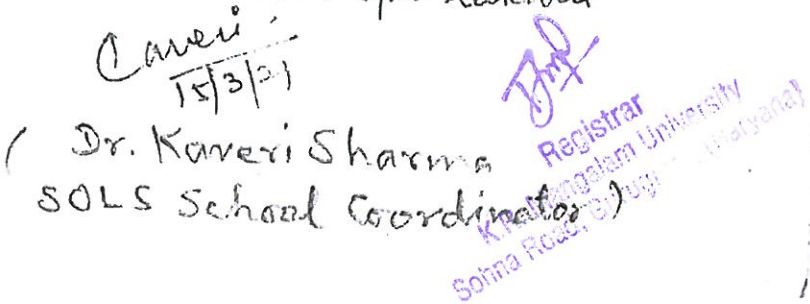 Caveri
15/3/21
( Dr. Kaveri Sharma
SOLS School Coordinator )
Registrar
K.R. Mangalam University
Sohna Road, (Haryana)